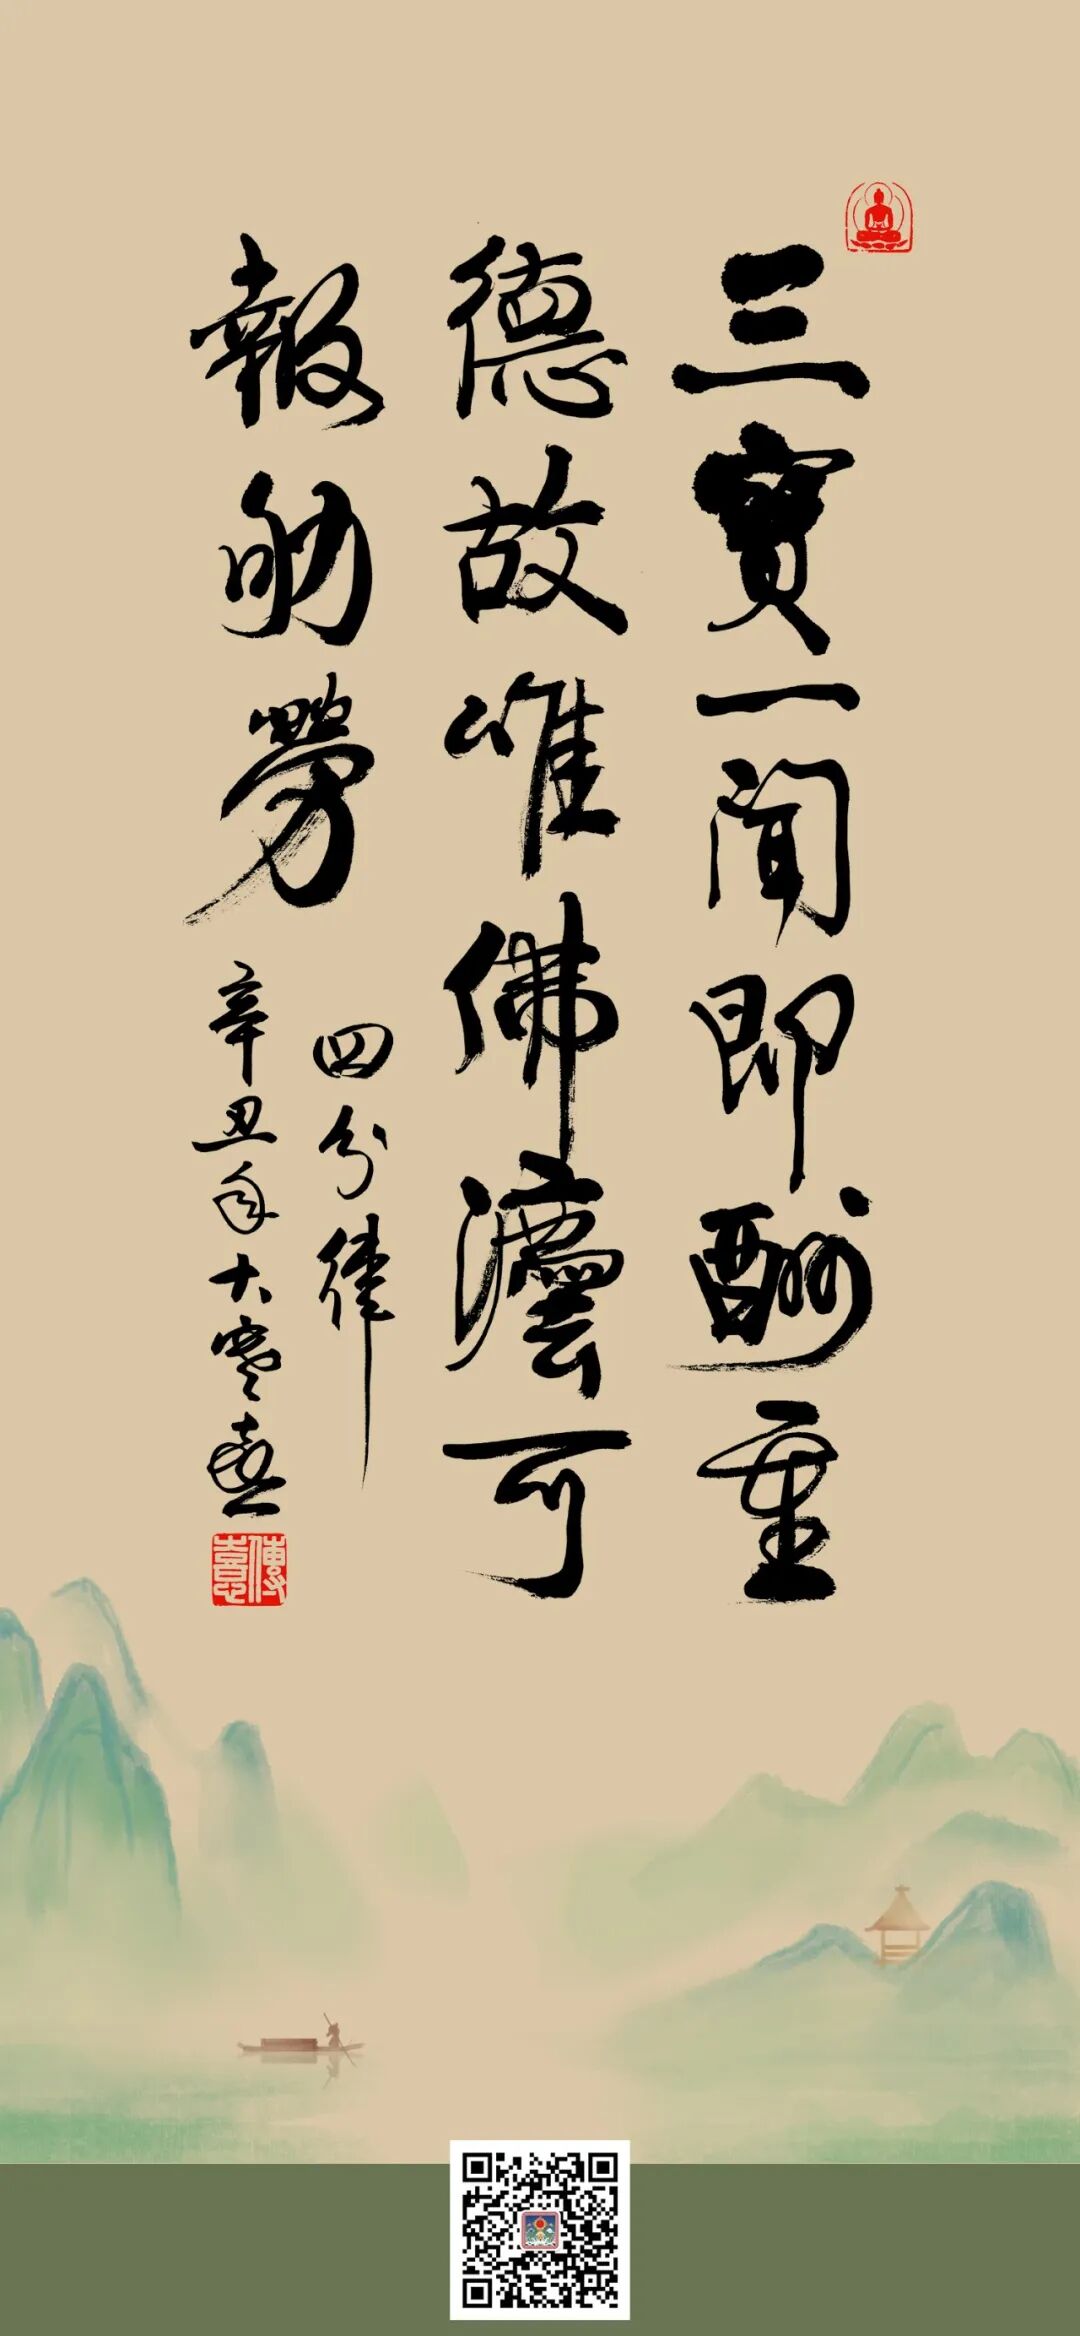 三寶一聞即酬重
德故唯佛灋可
報劬勞
四分律
辛丑年大寒憙
傳憙